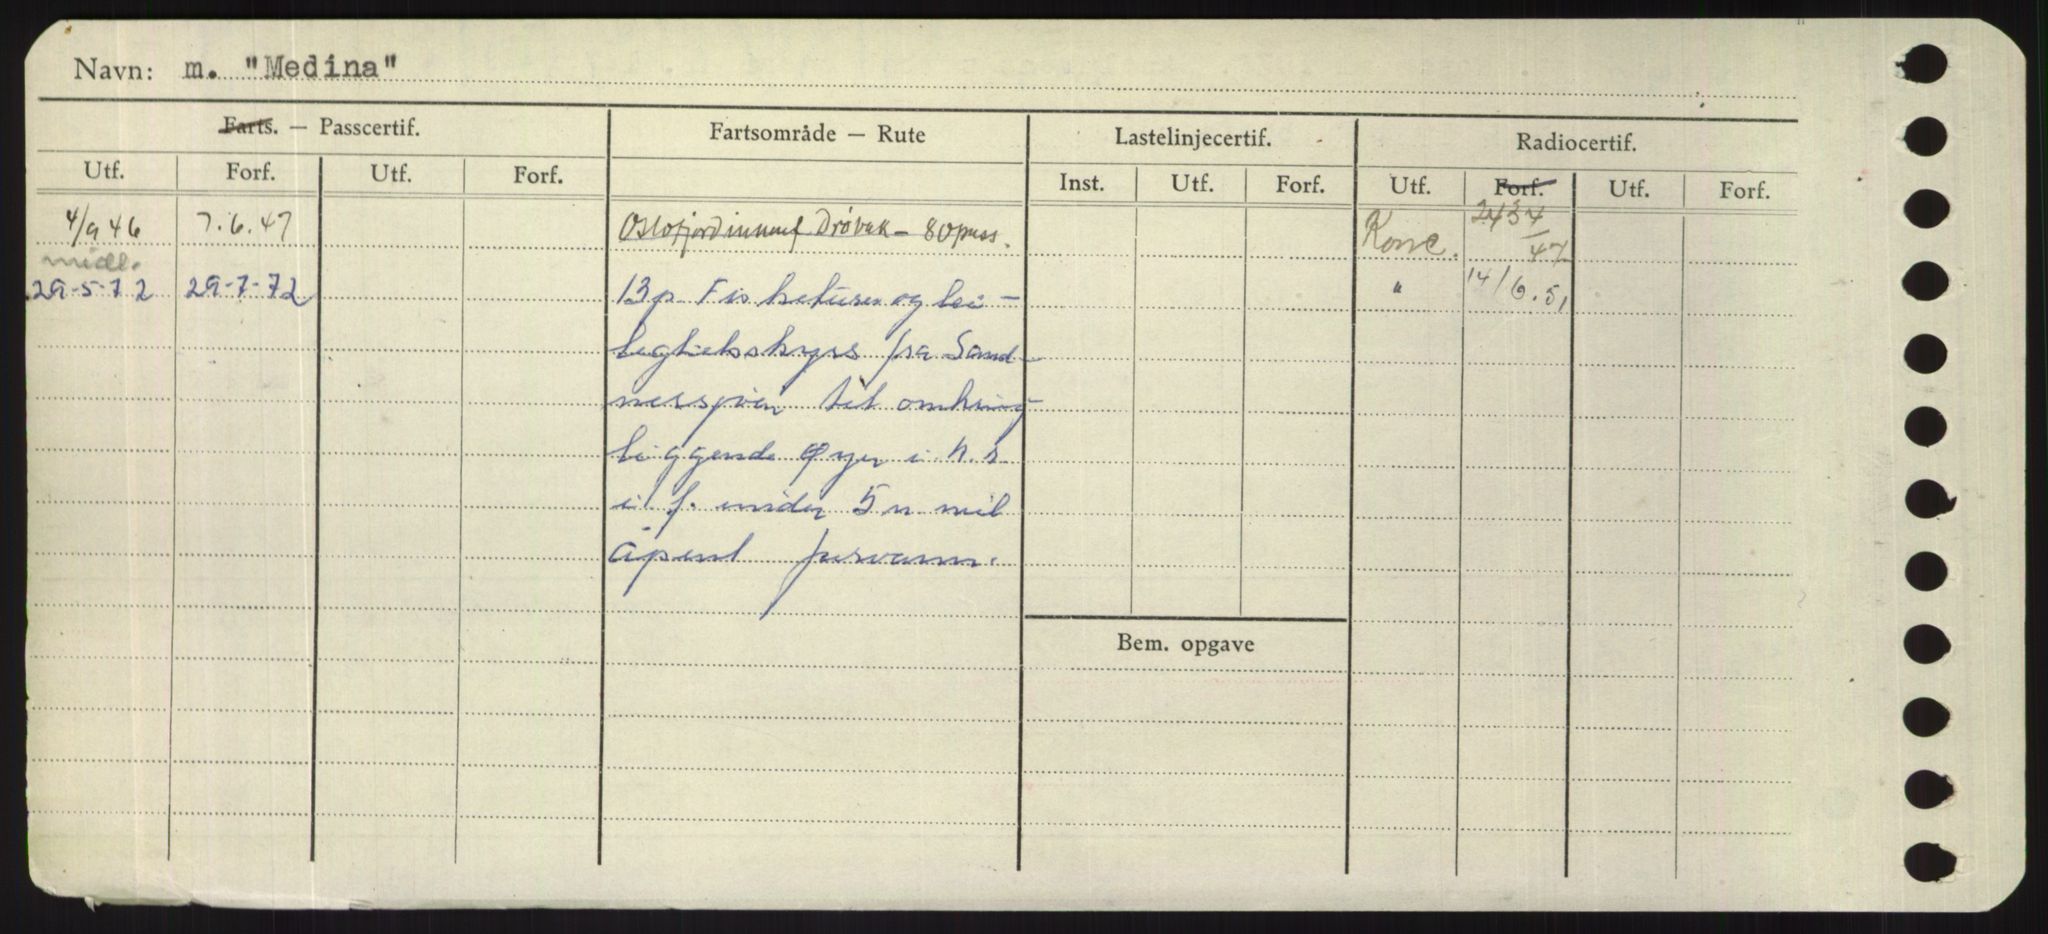 Navn: m. "Medina"
Farts. — Passcertif. Fartsområde — Rute Lastelinjecertif. Radiocertif.
Utf. Forf. Utf. Forf. Inst. Utf. Forf. Utf. Forf. Utf. Forf.
4/9 46 7.6.47 Oslofjord innenf Drøbak - 80 pass. Konc. 2434/47
midl.
29-5-72 29-7-72 13 p Fisketurer og lei- " 14/6.51
leghetsskyss fra Sand-
nessjøen til omkring
liggende Øyer i h.s
i f. under 5 n mil
åpent farvann.
Bem. opgave